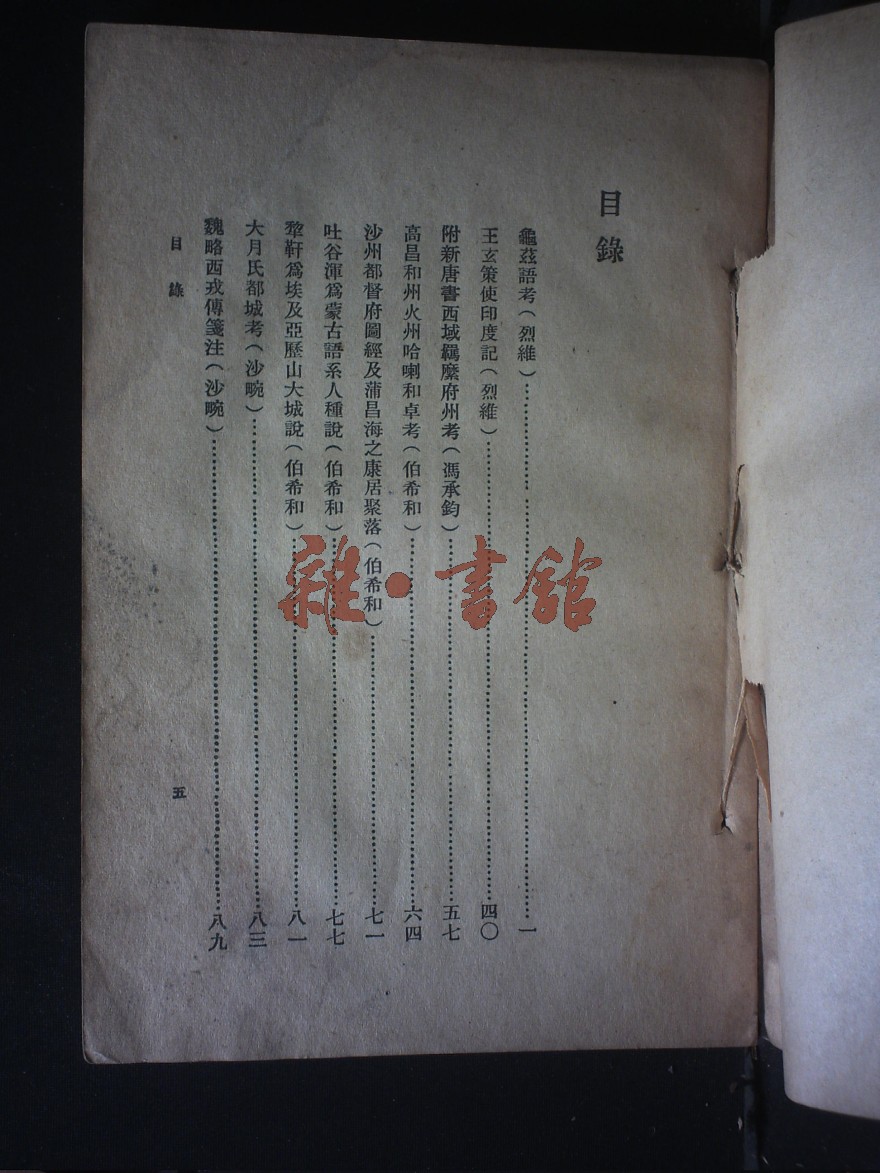 目錄
龜茲語考(烈維)………………一
王玄策使印度記(烈維)………………四〇
附新唐書西域羈縻府州考(馮承鈞)………………五七
高昌和州火州哈喇和卓考(伯希和)………………六四
沙州都督府圖經及蒲昌海之康居聚落(伯希和)………………七一
吐谷渾爲蒙古語系人種說(伯希和)………………七七
犂靬爲埃及亞歷山大城說(伯希和)………………八一
大月氏都城考(沙畹)………………八三
魏略西戎傳箋注(沙畹)………………八九
目錄
五
雜·書館